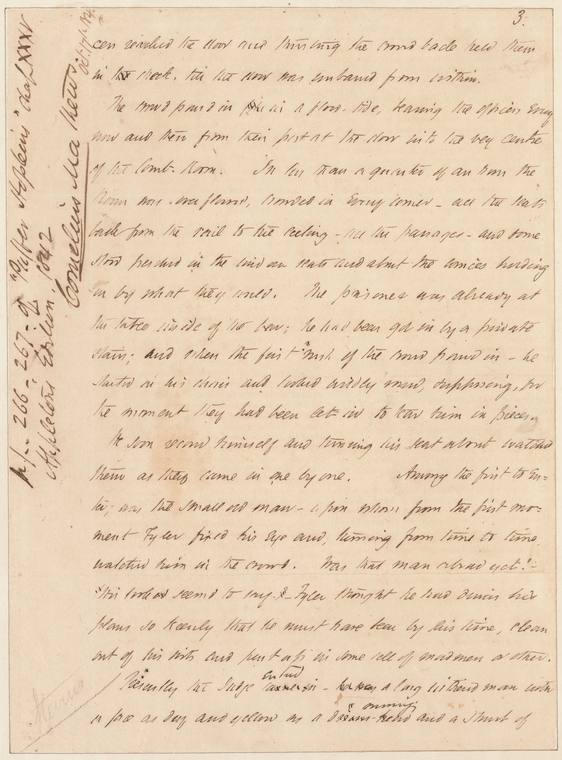 3.
cers reached the door and thrusting the crowd back held them
in check, till the door was unbarred from within.
The crowd poured in in a flood-tide, bearing the officers every
now and then from their post at the door into the very centre
of the Court-Room. In less than a quarter of an hour the
Room was overflowed, crowded in every corner - all the seats
back from the rail to the ceiling - all the passages - and some
stood perched in the window seats and about the cornices holding
on by what they could. The prisoner was already at
the table inside of the bar; he had been got in by a private
stair; and when the first rush of the crowd poured in - he
started in his chair and looked wildly round, supposing, for
the moment they had been let in to tear him in pieces.
He soon recovered himself and turning his seat about watched
them as they came in one by one. Among the first to en-
ter, was the small old man - upon whom from the first mo-
ment Fyler fixed his eye and, turning from time to time
watched him in the crowd. Was that man abroad yet?
his look seemed to say - Fyler thought he had driven his
plans so keenly that he must have been by this time, clean
out of his wits and put up in some cell of madmen or other.
Presently the Judge entered in - a long withered man with
a face as dry and yellow as a mummy's and a shout of
p/. 266-267-9 "Puffer Hopkins" Chap. XXXV
Appleton's Edition, 1842
Cornelius Mathews